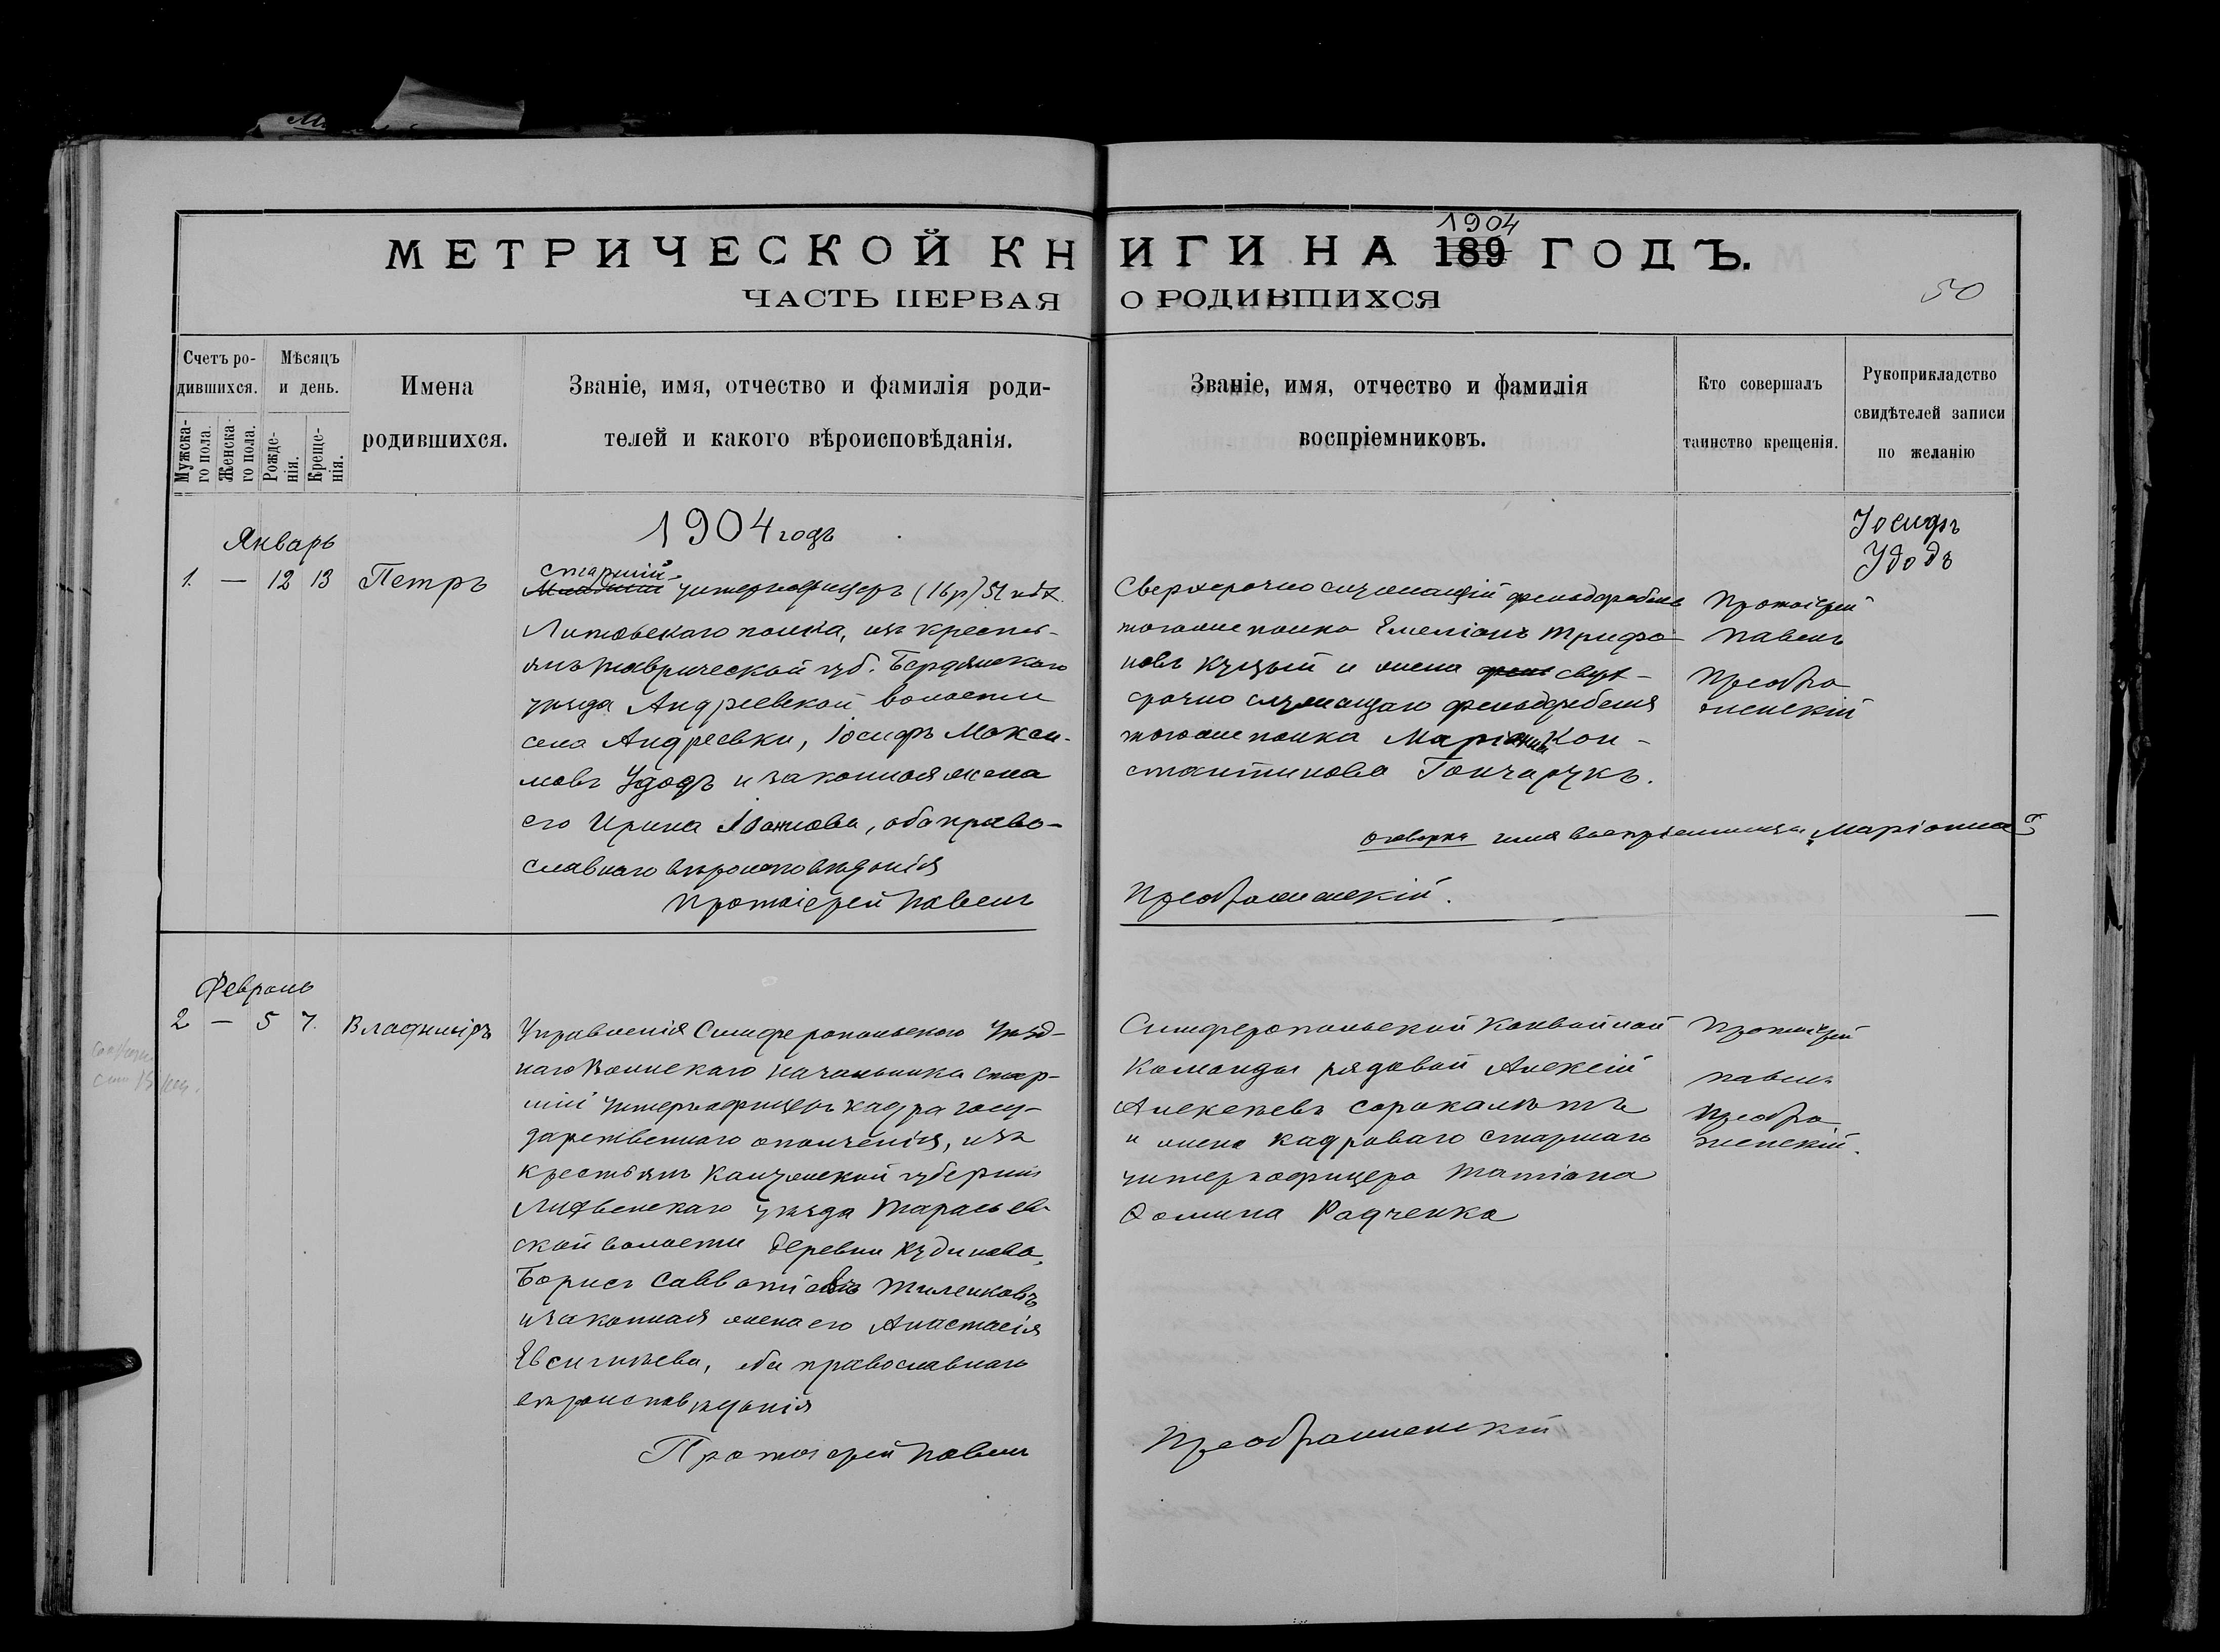 МЕТРИЧЕСКОЙ КНИГИ НА 189 1904 ГОДЪ.
ЧАСТЬ ПЕРВАЯ О РОДИВШИХСЯ
50
Счетъ ро-
дившихся.
Мужска-
го пола.
Женска-
го пола.
Мѣсяцъ
и день.
Рожде-
нія.
Креще-
нія.
Имена
родившихся.
Званіе, имя, отчество и фамилія роди-
телей и какого вѣроисповѣданія.
Званіе, имя, отчество и фамилія
воспріемниковъ.
Кто совершалъ
таинство крещенія.
Рукоприкладство
свидѣтелей записи
по желанію
1904 годъ
Январь
1. — 12 13 Петръ
старшій
Младшій унтерофицеръ (16 р) 51 пѣх.
Литовскаго полка, изъ кресть-
янъ Таврической губ. Бердянскаго
уѣзда Андреевской волости
села Андреевки, Іосифъ Макси-
мовъ Удодъ и законная жена
его Ирина Іванова, оба право-
славнаго вѣроисповѣданія
Протоіерей Павелъ
Сверхсрочно служащій фельдфебель
тогоже полка Емеліанъ Трифо-
новъ Куцый и жена сверх-
срочно служащаго фельдфебеля
тогоже полка Маріанна Кон-
стантинова Гончарукъ.
оговорка имя воспріемницы „Маріанна“
Преображенскій.
Протоіерей
Павелъ
Преобра
женскій
Іосифъ
Удодъ
Февраль
2 — 5 7. Владиміръ
Управленія Симферопольскаго Уѣзд-
наго Воинскаго Начальника стар-
шій унтерофицеръ кадра госу-
дарственнаго ополченія, изъ
крестьянъ Калужской губерніи
Лихвенскаго уѣзда Тарасьев-
ской волости деревни Кудинова,
Борисъ Савватіевъ Тиленковъ
и законная жена его Анастасія
Евсигнѣева, оба православнаго
вѣроисповѣданія
Протоіерей Павелъ
Симферопольской Конвойной
Команды рядовой Алексій
Алексѣевъ Сорокалѣтъ
и жена кадроваго старшаго
унтерофицера Татіана
Ѳомина Радченко
Преображенскій
Протоіерей
Павелъ
Преобра
женскій.